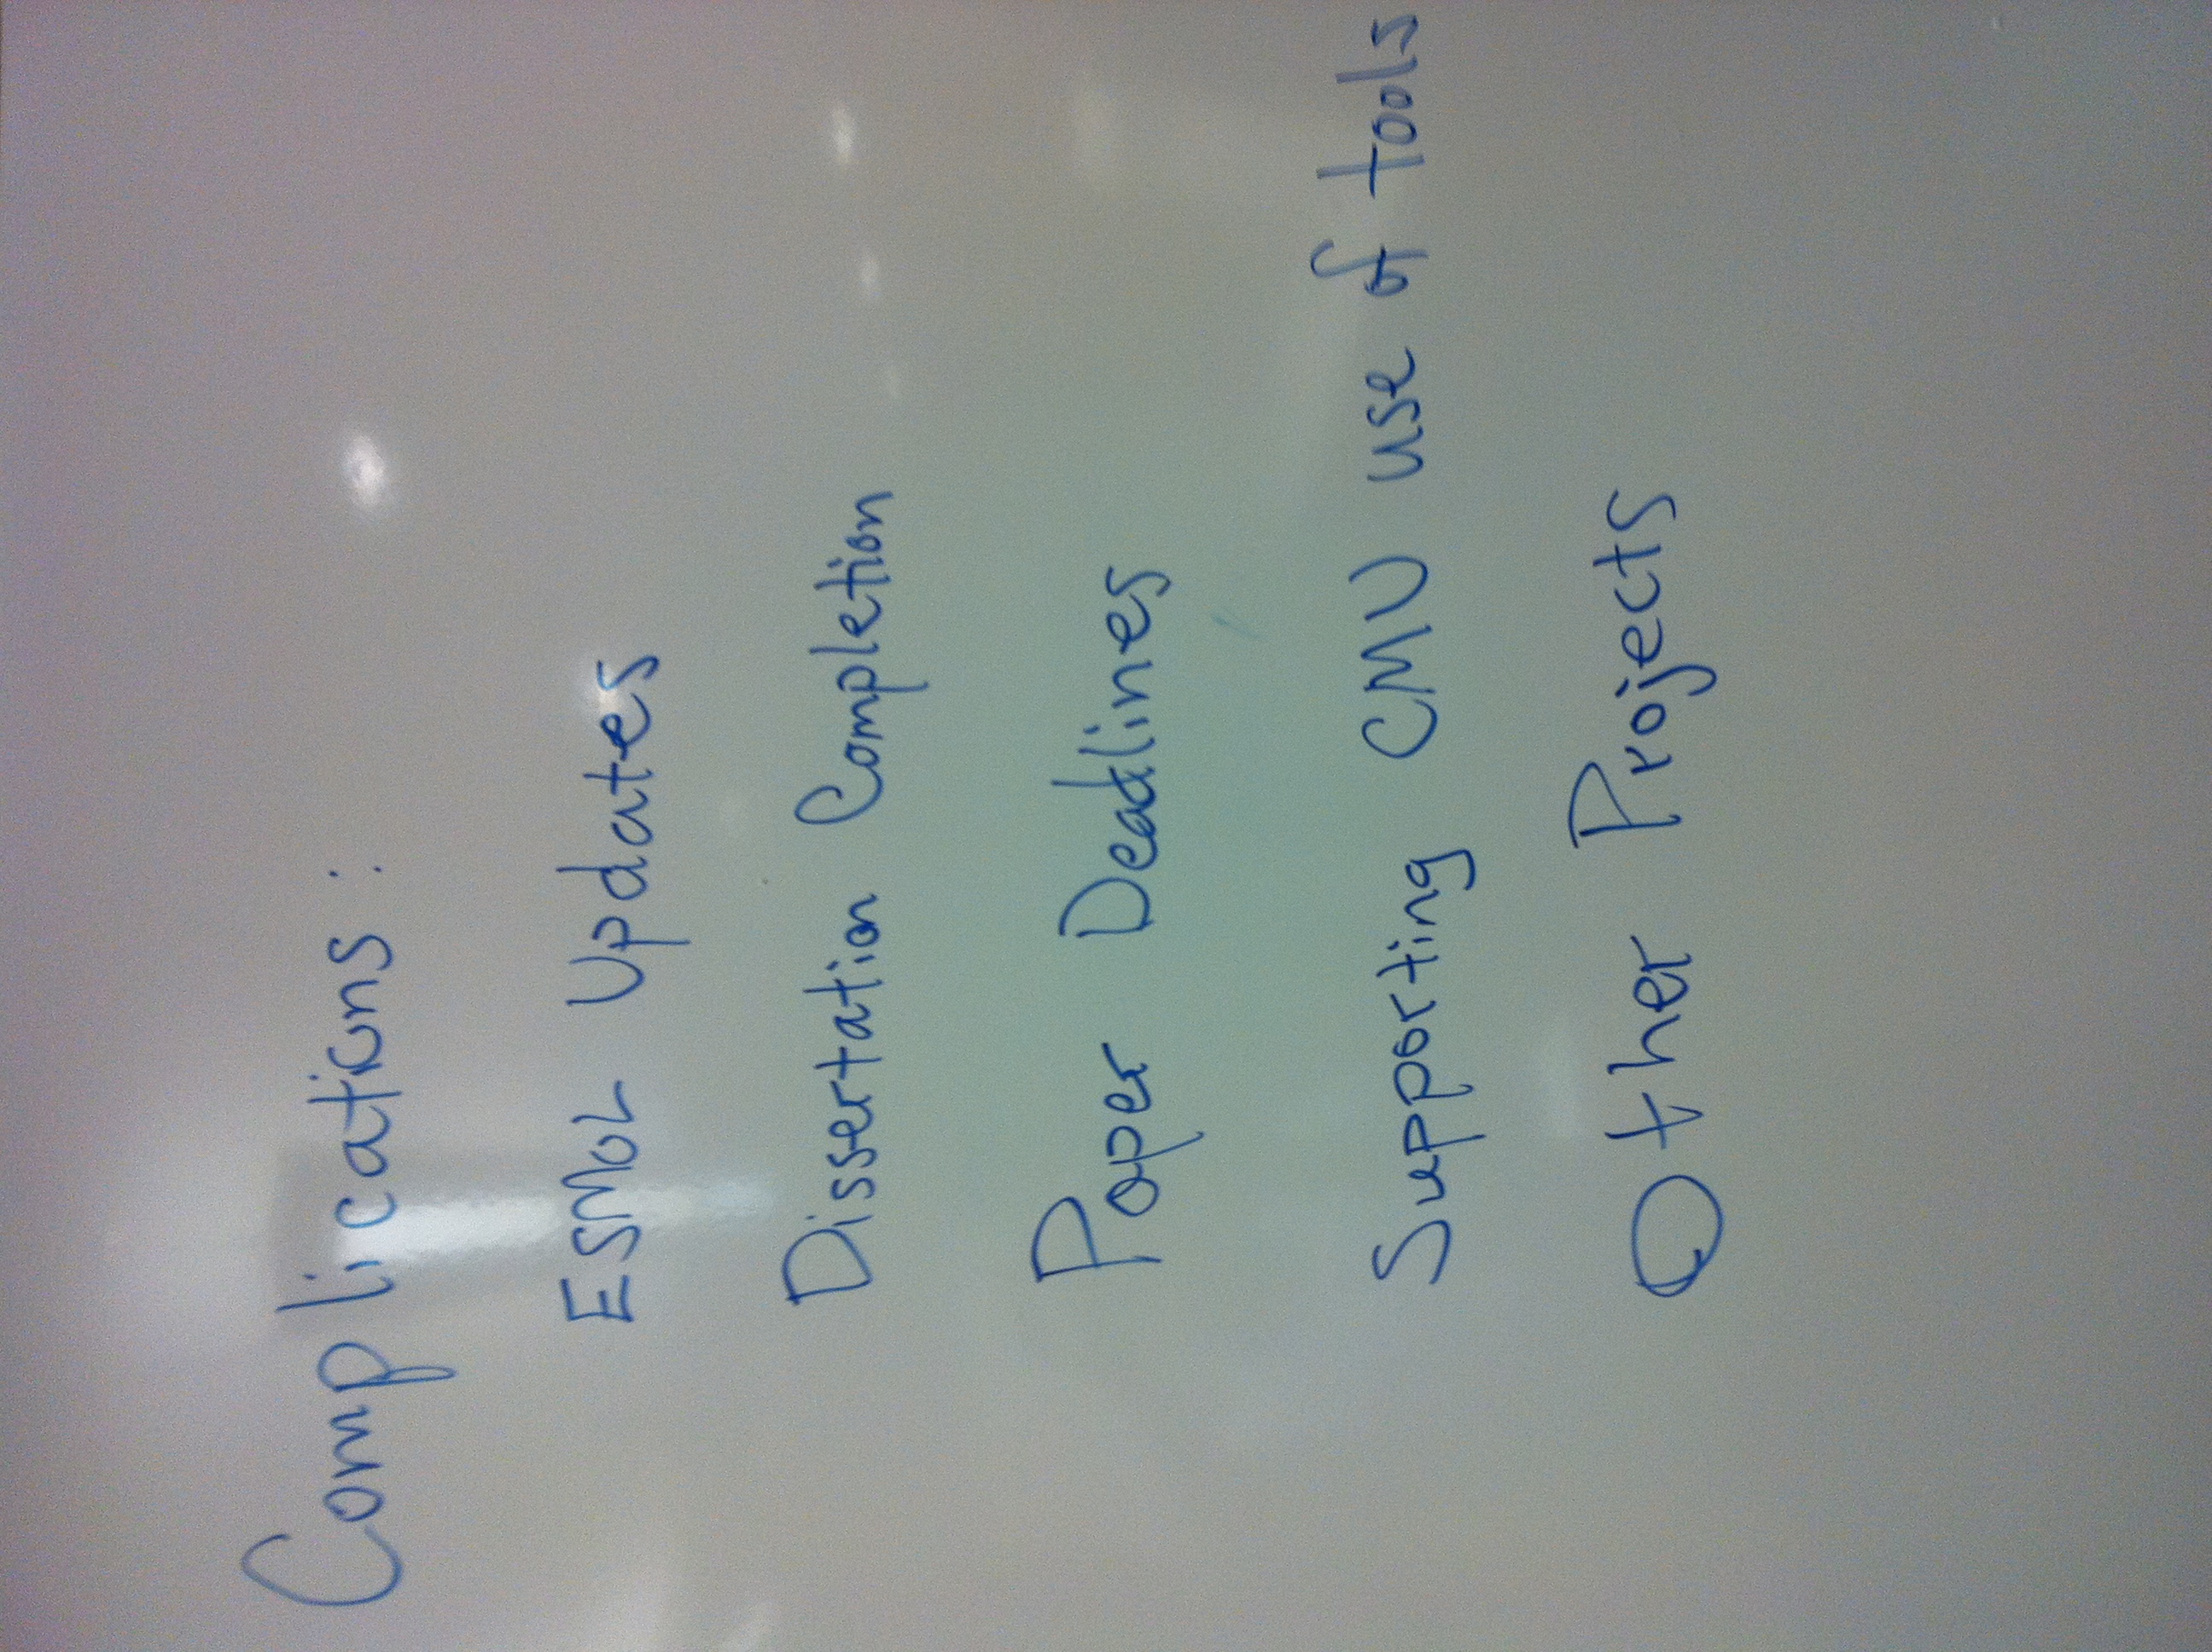 Complications:
ESMOL Updates
Dissertation Completion
Paper Deadlines
Supporting CMU use of tools
Other Projects